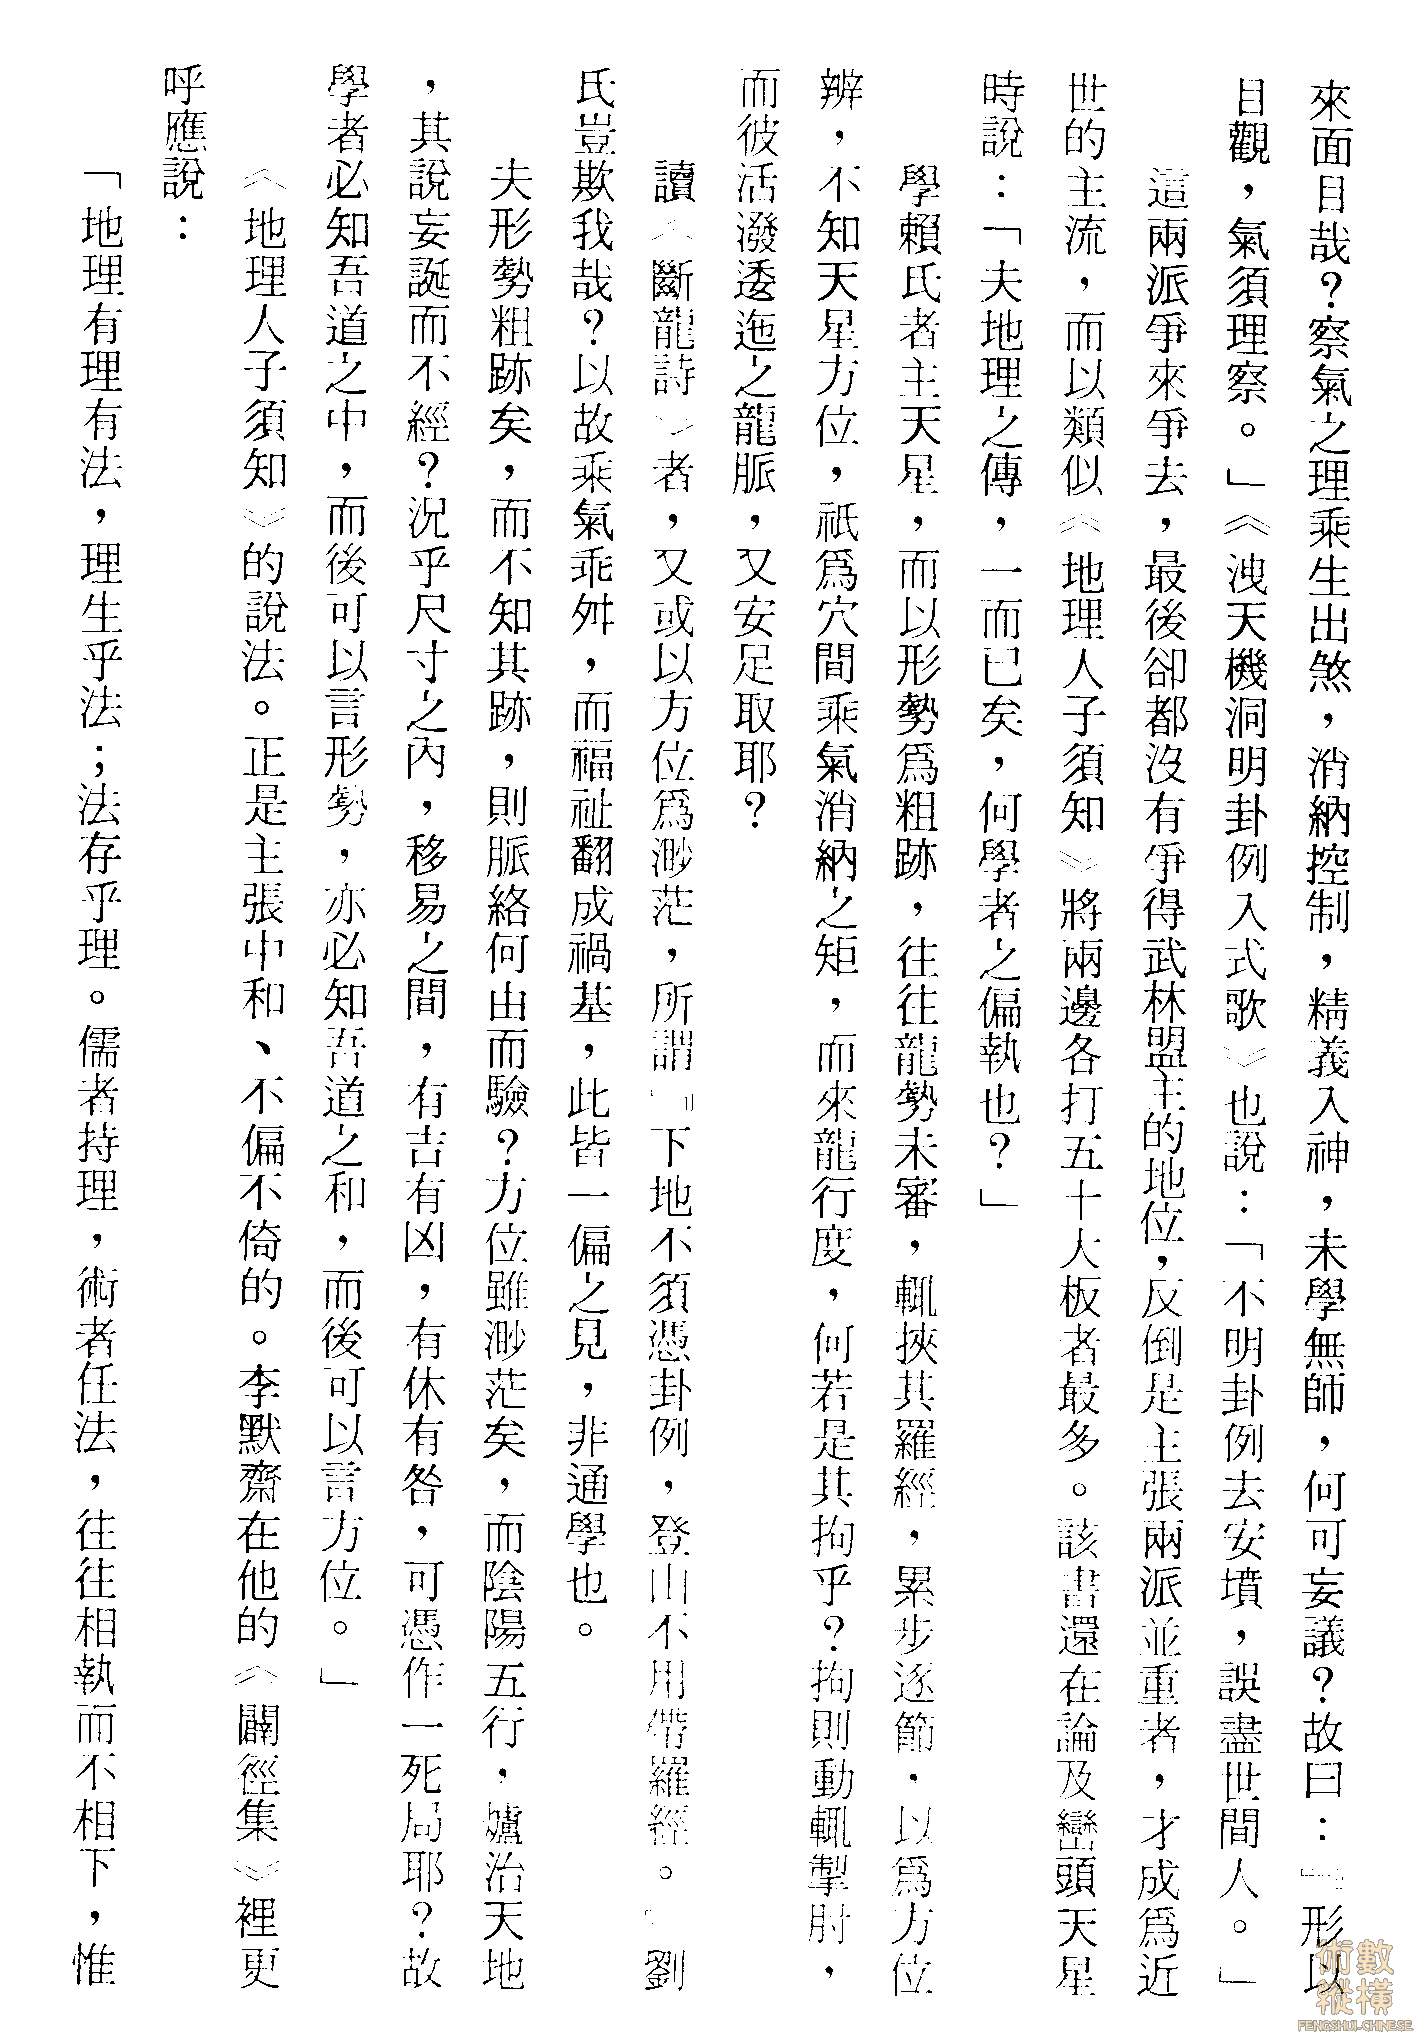 來面目哉？察氣之理乘生出煞，消納控制，精義入神，未學無師，何可妄議？故曰：『形以
目觀，氣須理察。」《洩天機洞明卦例入式歌》也說：「不明卦例去安墳，誤盡世間人。」
這兩派爭來爭去，最後卻都沒有爭得武林盟主的地位，反倒是主張兩派並重者，才成為近
世的主流，而以類似《地理人子須知》將兩邊各打五十大板者最多。該書還在論及巒頭天星
時說：「夫地理之傳，一而已矣，何學者之偏執也？」
學賴氏者主天星，而以形勢爲粗跡，往往龍勢未審，輒挾其羅經，累步逐節，以爲方位
辨，不知天星方位，祇爲穴間乘氣消納之矩，而來龍行度，何若是其拘乎？拘則動輒掣肘，
而彼活潑透迤之龍脈，又安足取耶？
讀《斷龍詩》者，又或以方位爲渺茫，所謂『下地不須憑卦例，登山不用帶羅經。』劉
氏豈欺我哉？以故乘氣乖舛，而福祉翻成禍基，此皆一偏之見，非通學也。
夫形勢粗跡矣，而不知其跡，則脈絡何由而驗？方位雖渺茫矣，而陰陽五行，爐治天地
，其說妄誕而不經？況乎尺寸之內，移易之間，有吉有凶，有休有咎，可憑作一死局耶？故
學者必知吾道之中，而後可以言形勢，亦必知吾道之和，而後可以言方位。」
《地理人子須知》的說法。正是主張中和、不偏不倚的。李默齋在他的《闢徑集》裡更
呼應說：
「地理有理有法，理生乎法；法存乎理。儒者持理，術者任法，往往相執而不相下，惟
術數
縱橫
FENGSHUI-CHINESE